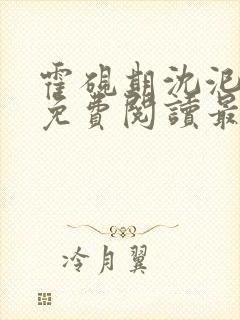 霍硯期沈泥
免費閱讀最
冷月翼